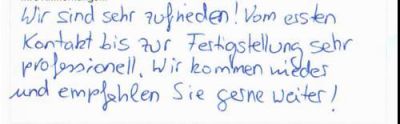 Wir sind sehr zufrieden! Vom ersten
Kontakt bis zur Fertigstellung sehr
professionell. Wir kommen wieder
und empfehlen Sie gerne weiter!